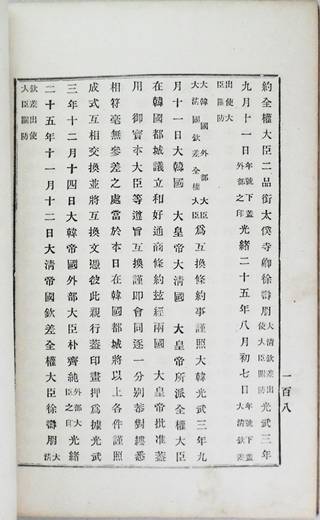 約全權大臣二品銜太僕寺卿徐壽朋大清欽差出使大臣關防光武三年
九月十一日年號下蓋外部之印光緒二十五年八月初七日年號下蓋大清欽差
出使大臣關防
大韓國外部大臣大清國欽差全權大臣爲互換條約事謹照大韓光武三年九
月十一日大韓國 大皇帝大清國 大皇帝所派全權大臣
在韓國都城議立和好通商條約玆經兩國 大皇帝批准蓋
用 御寶本大臣等遵旨互換謹即會同逐一分別恭對悉
相符毫無參差之處當於本日在韓國都城將以上各件謹照
成式互相交換並將互換文憑彼此親行蓋印畫押爲據光武
三年十二月十四日大韓帝國外部大臣朴齊純外部大臣之印光緒
二十五年十一月十二日大清帝國欽差全權大臣徐壽朋大清
欽差出使大臣關防
一百八